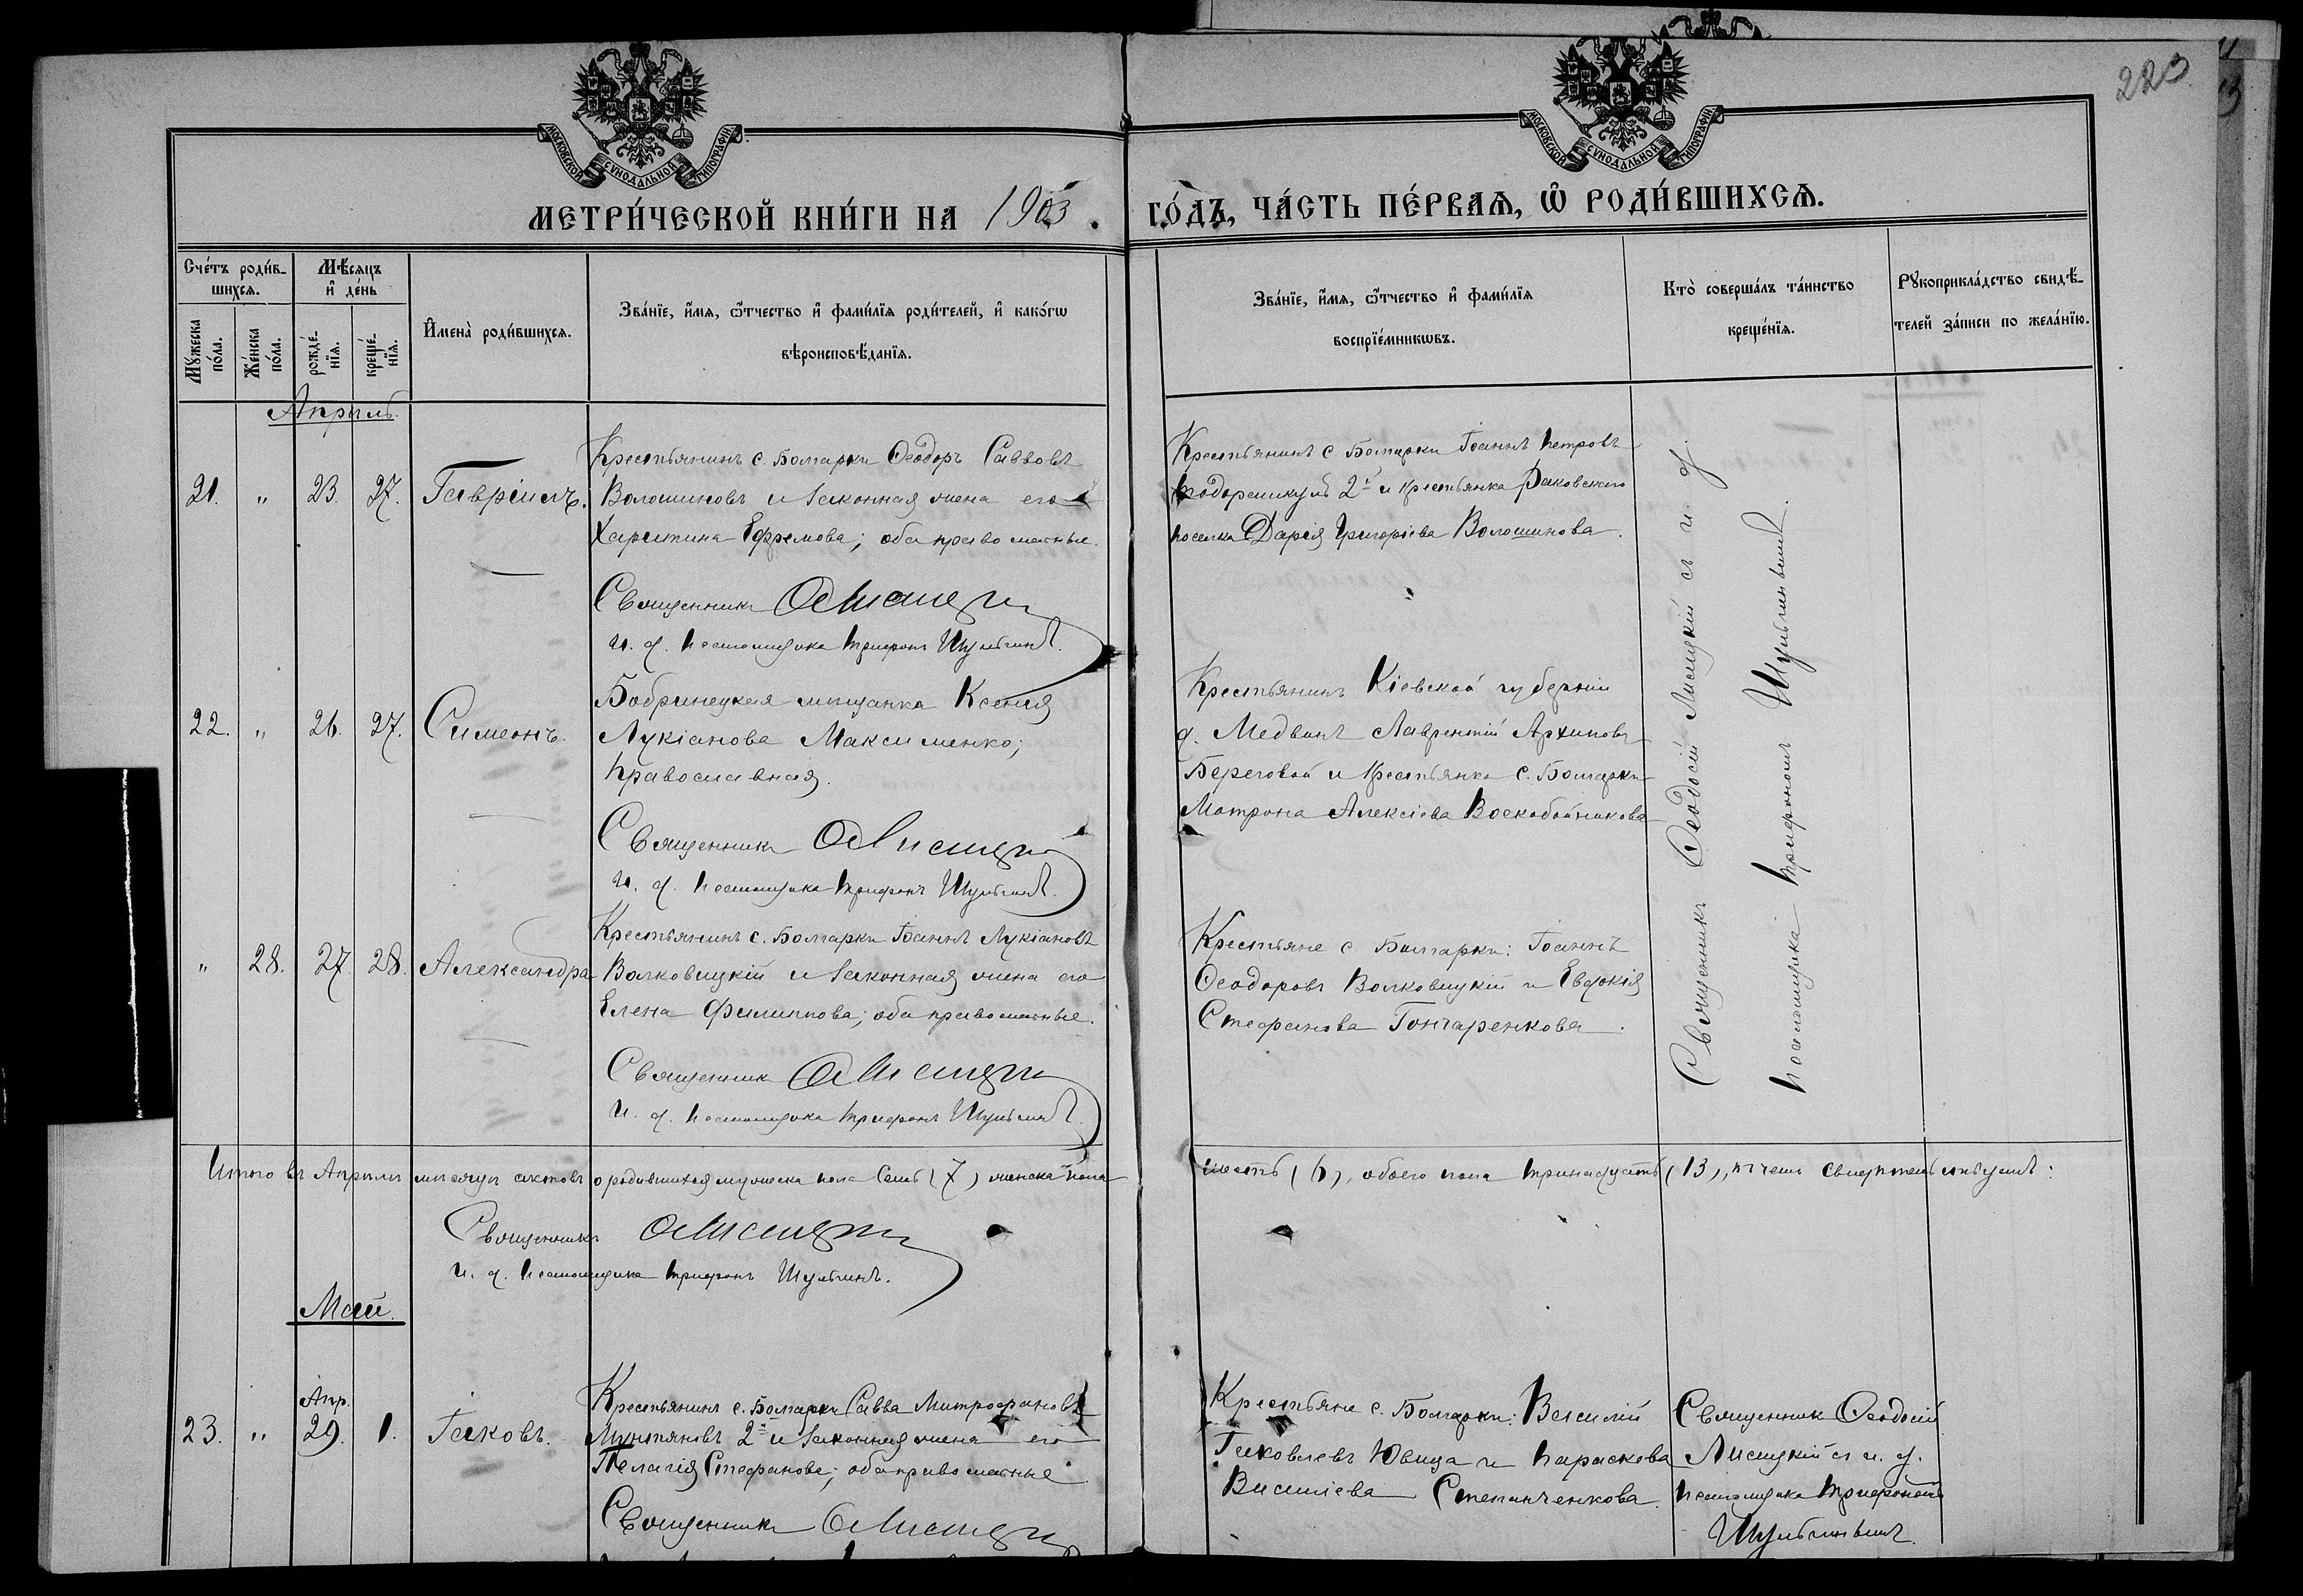 223
МОСКОВСКОЙ СѴНОДАЛЬНОЙ ТИПОГРАФІИ
МОСКОВСКОЙ СѴНОДАЛЬНОЙ ТИПОГРАФІИ
МЕТРИ́ЧЕСКОЙ КНИ́ГИ НА 1903.
ГО́ДЪ, ЧА́СТЬ ПЕ́РВАѦ, Ѿ РОДИ́ВШИХСѦ.
Сче́тъ роди́вшихсѧ.
Мꙋ́жеска по́ла.
Же́нска по́ла.
Мѣ́сяцъ и҆ де́нь
рожде́нїѧ.
креще́нїѧ.
И҆мена̀ роди́вшихсѧ.
Зва́нїе, и҆́мѧ, ѻ҆́тчество и҆ фами́лїѧ роди́телей, и҆ како́гѡ
вѣроисповѣ́данїѧ.
Зва́нїе, и҆́мѧ, ѻ҆́тчество и҆ фами́лїѧ
воспрїе́мникѡвъ.
Кто̀ соверша́лъ та́инство
креще́нїѧ.
Рꙋкоприкла́дство свидѣ́-
телей за́писи по жела́нїю.
Апрѣль.
21. " 23. 27. Гавріилъ.
Крестьянинъ с. Болгарки Ѳеодоръ Савовъ
Волошиновъ и законная жена его
Харитина Ефремова; оба православные.
Священникъ Ѳ Лисицкій
и. д. псаломщика Трифонъ Шульгинъ.
Крестьянинъ с. Болгарки Іоаннъ Петровъ
2й и крестьянка Раковского
поселка Дарія Григоріева Волошинова.
22. " 26. 27. Симеонъ.
Бобринецкая мѣщанка Ксенія
Лукіанова Максименко;
православная.
Священникъ Ѳ Лисицкій
и. д. псаломщика Трифонъ Шульгинъ.
Крестьянинъ Кіевской губерніи
д. Медвинъ Лаврентій Архиповъ
Береговой и крестьянка с. Болгарки
Матрона Алексіева Воскобойникова
" 28. 27. 28. Александра
Крестьянинъ с. Болгарки Іоаннъ Лукіановъ
Волковицкій и законная жена его
Елена Филиппова; оба православные.
Священникъ Ѳ Лисицкій
и. д. псаломщика Трифонъ Шульгинъ.
Крестьяне с Болгарки: Іоаннъ
Ѳеодоровъ Волковицкій и Евдокія
Стефанова Гончаренкова.
Священникъ Ѳеодосій Лисицкій съ и. д.
псаломщика Трифономъ Шульгинымъ.
Итого въ Апрѣлѣ мѣсяцѣ актовъ о родившихся мужеска пола семь (7) женска пола
шесть (6), обоего пола тринадцать (13), въ чемъ свидѣтельствуемъ:
Священникъ Ѳ Лисицкій
и. д. псаломщика Трифонъ Шульгинъ.
Май.
23. " Апр. 29. 1. Іаковъ.
Крестьянинъ с. Болгарки Савва Митрофановъ
Мунтяновъ 2й и законная жена его
Пелагія Стефанова; оба православные
Священникъ Ѳ Лисицкій
Крестьяне с. Болгарки: Василій
Іаковлевъ Ювица и Параскева
Василіева Степанченкова.
Священникъ Ѳеодосій
Лисицкій съ и. д.
псаломщика Трифономъ
Шульгинымъ.